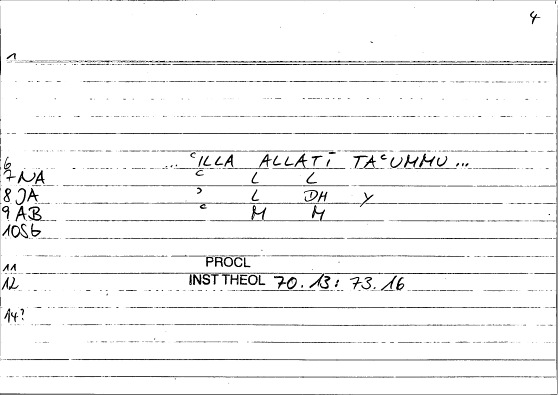 4
1
6 ... ᶜILLA ALLATĪ TAᶜUMMU ...
7 NA ᶜ L L
8 JA ʾ L DH Y
9 AB ᶜ M M
10 SG
11 PROCL
12 INST THEOL 70.13: 73.16
14?